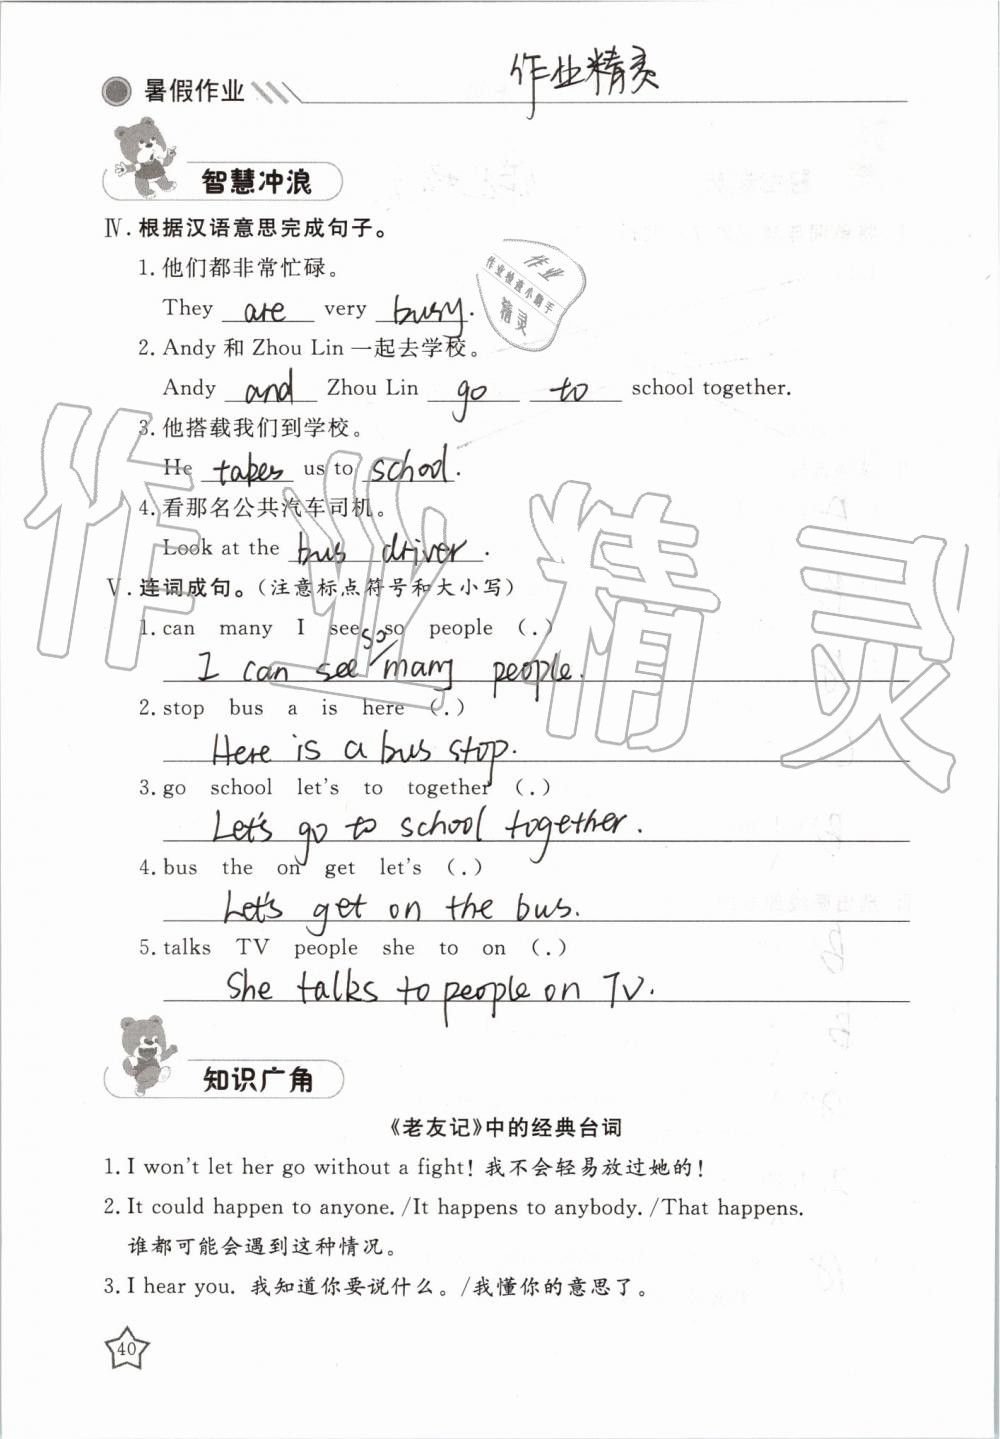 作业精灵
暑假作业
智慧冲浪
Ⅳ.根据汉语意思完成句子。
1.他们都非常忙碌。
They are very busy.
2.Andy 和 Zhou Lin 一起去学校。
Andy and Zhou Lin go to school together.
3.他搭载我们到学校。
He takes us to school.
4.看那名公共汽车司机。
Look at the bus driver.
Ⅴ.连词成句。(注意标点符号和大小写)
1.can many I see so people (.)
I can see so many people.
2.stop bus a is here (.)
Here is a bus stop.
3.go school let's to together (.)
Let's go to school together.
4.bus the on get let's (.)
Let's get on the bus.
5.talks TV people she to on (.)
She talks to people on TV.
知识广角
《老友记》中的经典台词
1.I won't let her go without a fight! 我不会轻易放过她的!
2.It could happen to anyone./It happens to anybody./That happens.
谁都可能会遇到这种情况。
3.I hear you. 我知道你要说什么。/我懂你的意思了。
40
作业
作业检查小助手
精灵
作业精灵